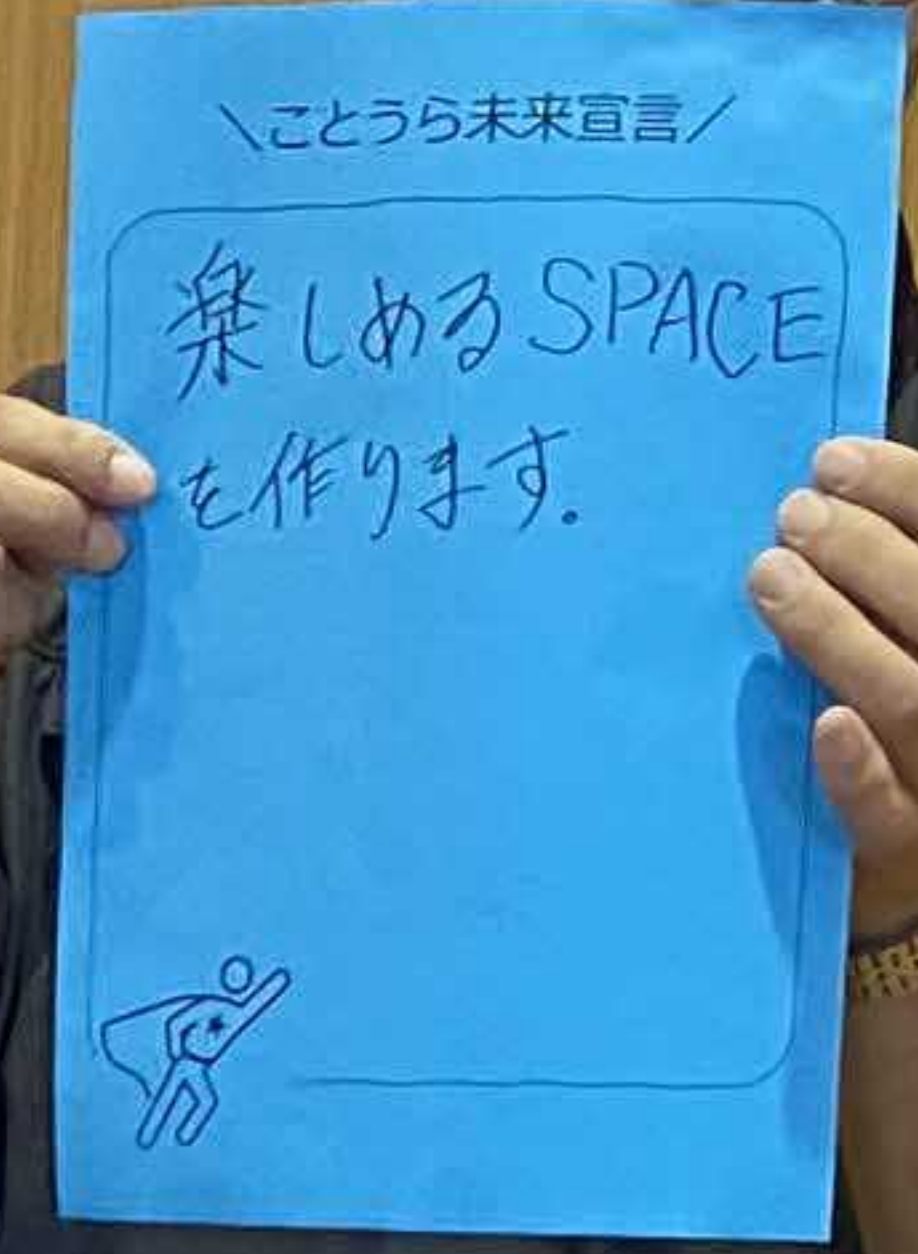 \ことうら未来宣言/
楽しめるSPACE
を作ります.